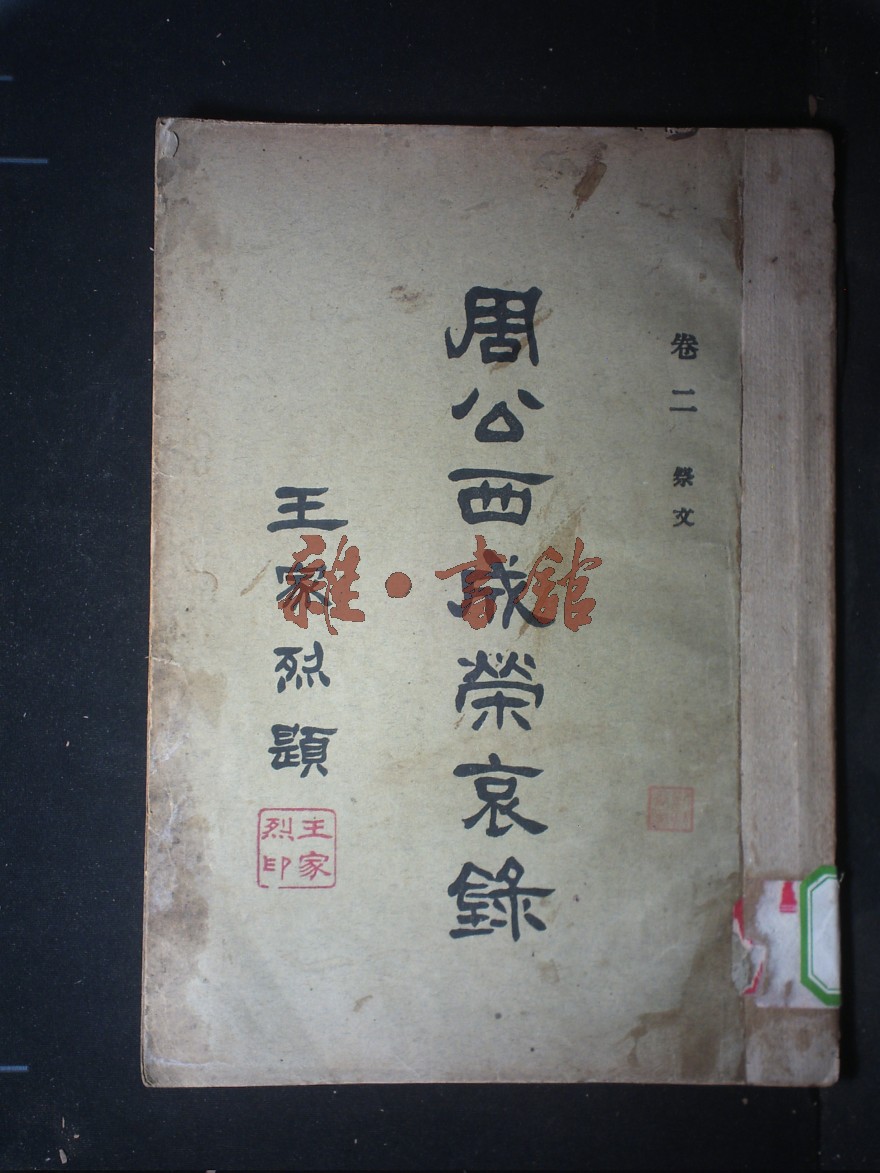 卷二 祭文
周公西成榮哀錄
王家烈題
王家烈印
雜·書館